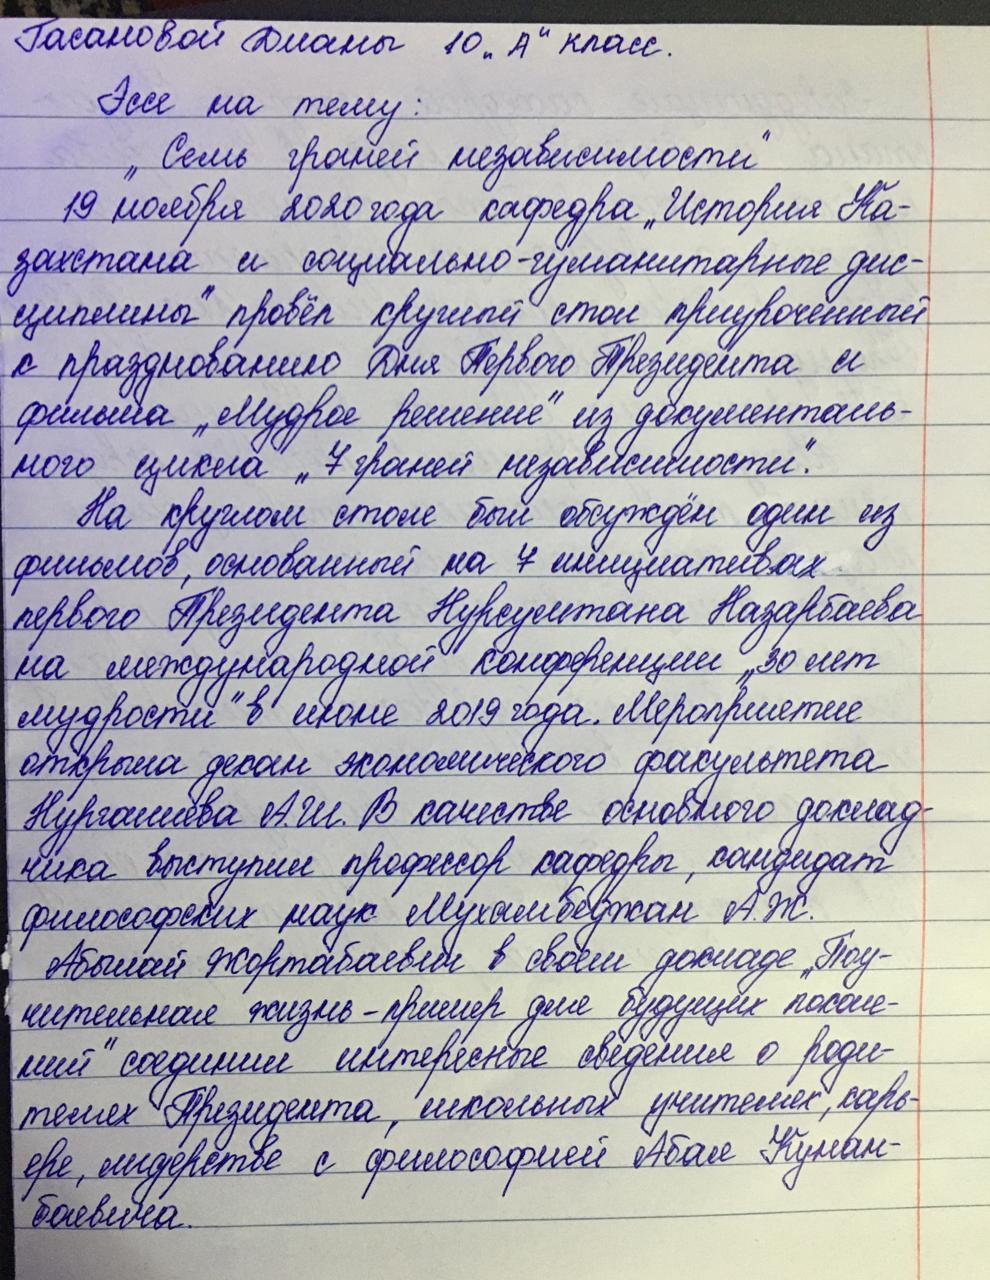 Гасановой Дианы 10 „А" класс.
Эссе на тему:
„Семь граней независимости"
19 ноября 2020 года кафедра „История Ка-
захстана и социально-гуманитарные дис-
циплины" провёл круглый стол приуроченный
к празднованию Дня Первого Президента и
фильма „Мудрое решение" из документаль-
ного цикла „7 граней независимости".
На круглом столе был обсуждён один из
фильмов, основанный на 7 инициативах
первого Президента Нурсултана Назарбаева
на международной конференции „30 лет
мудрости" в июне 2019 года. Мероприятие
открыла декан экономического факультета
Нургалиева А.Ш. В качестве основного доклад-
чика выступил профессор кафедры, кандидат
философских наук Мухамбеджан А.Ж.
Абылай Жортабаевич в своём докладе „Поу-
чительная жизнь – пример для будущих поколе-
ний" соединил интересные сведения о роди-
телях Президента, школьных учителях, карь-
ере, лидерстве с философией Абая Кунан-
баевича.